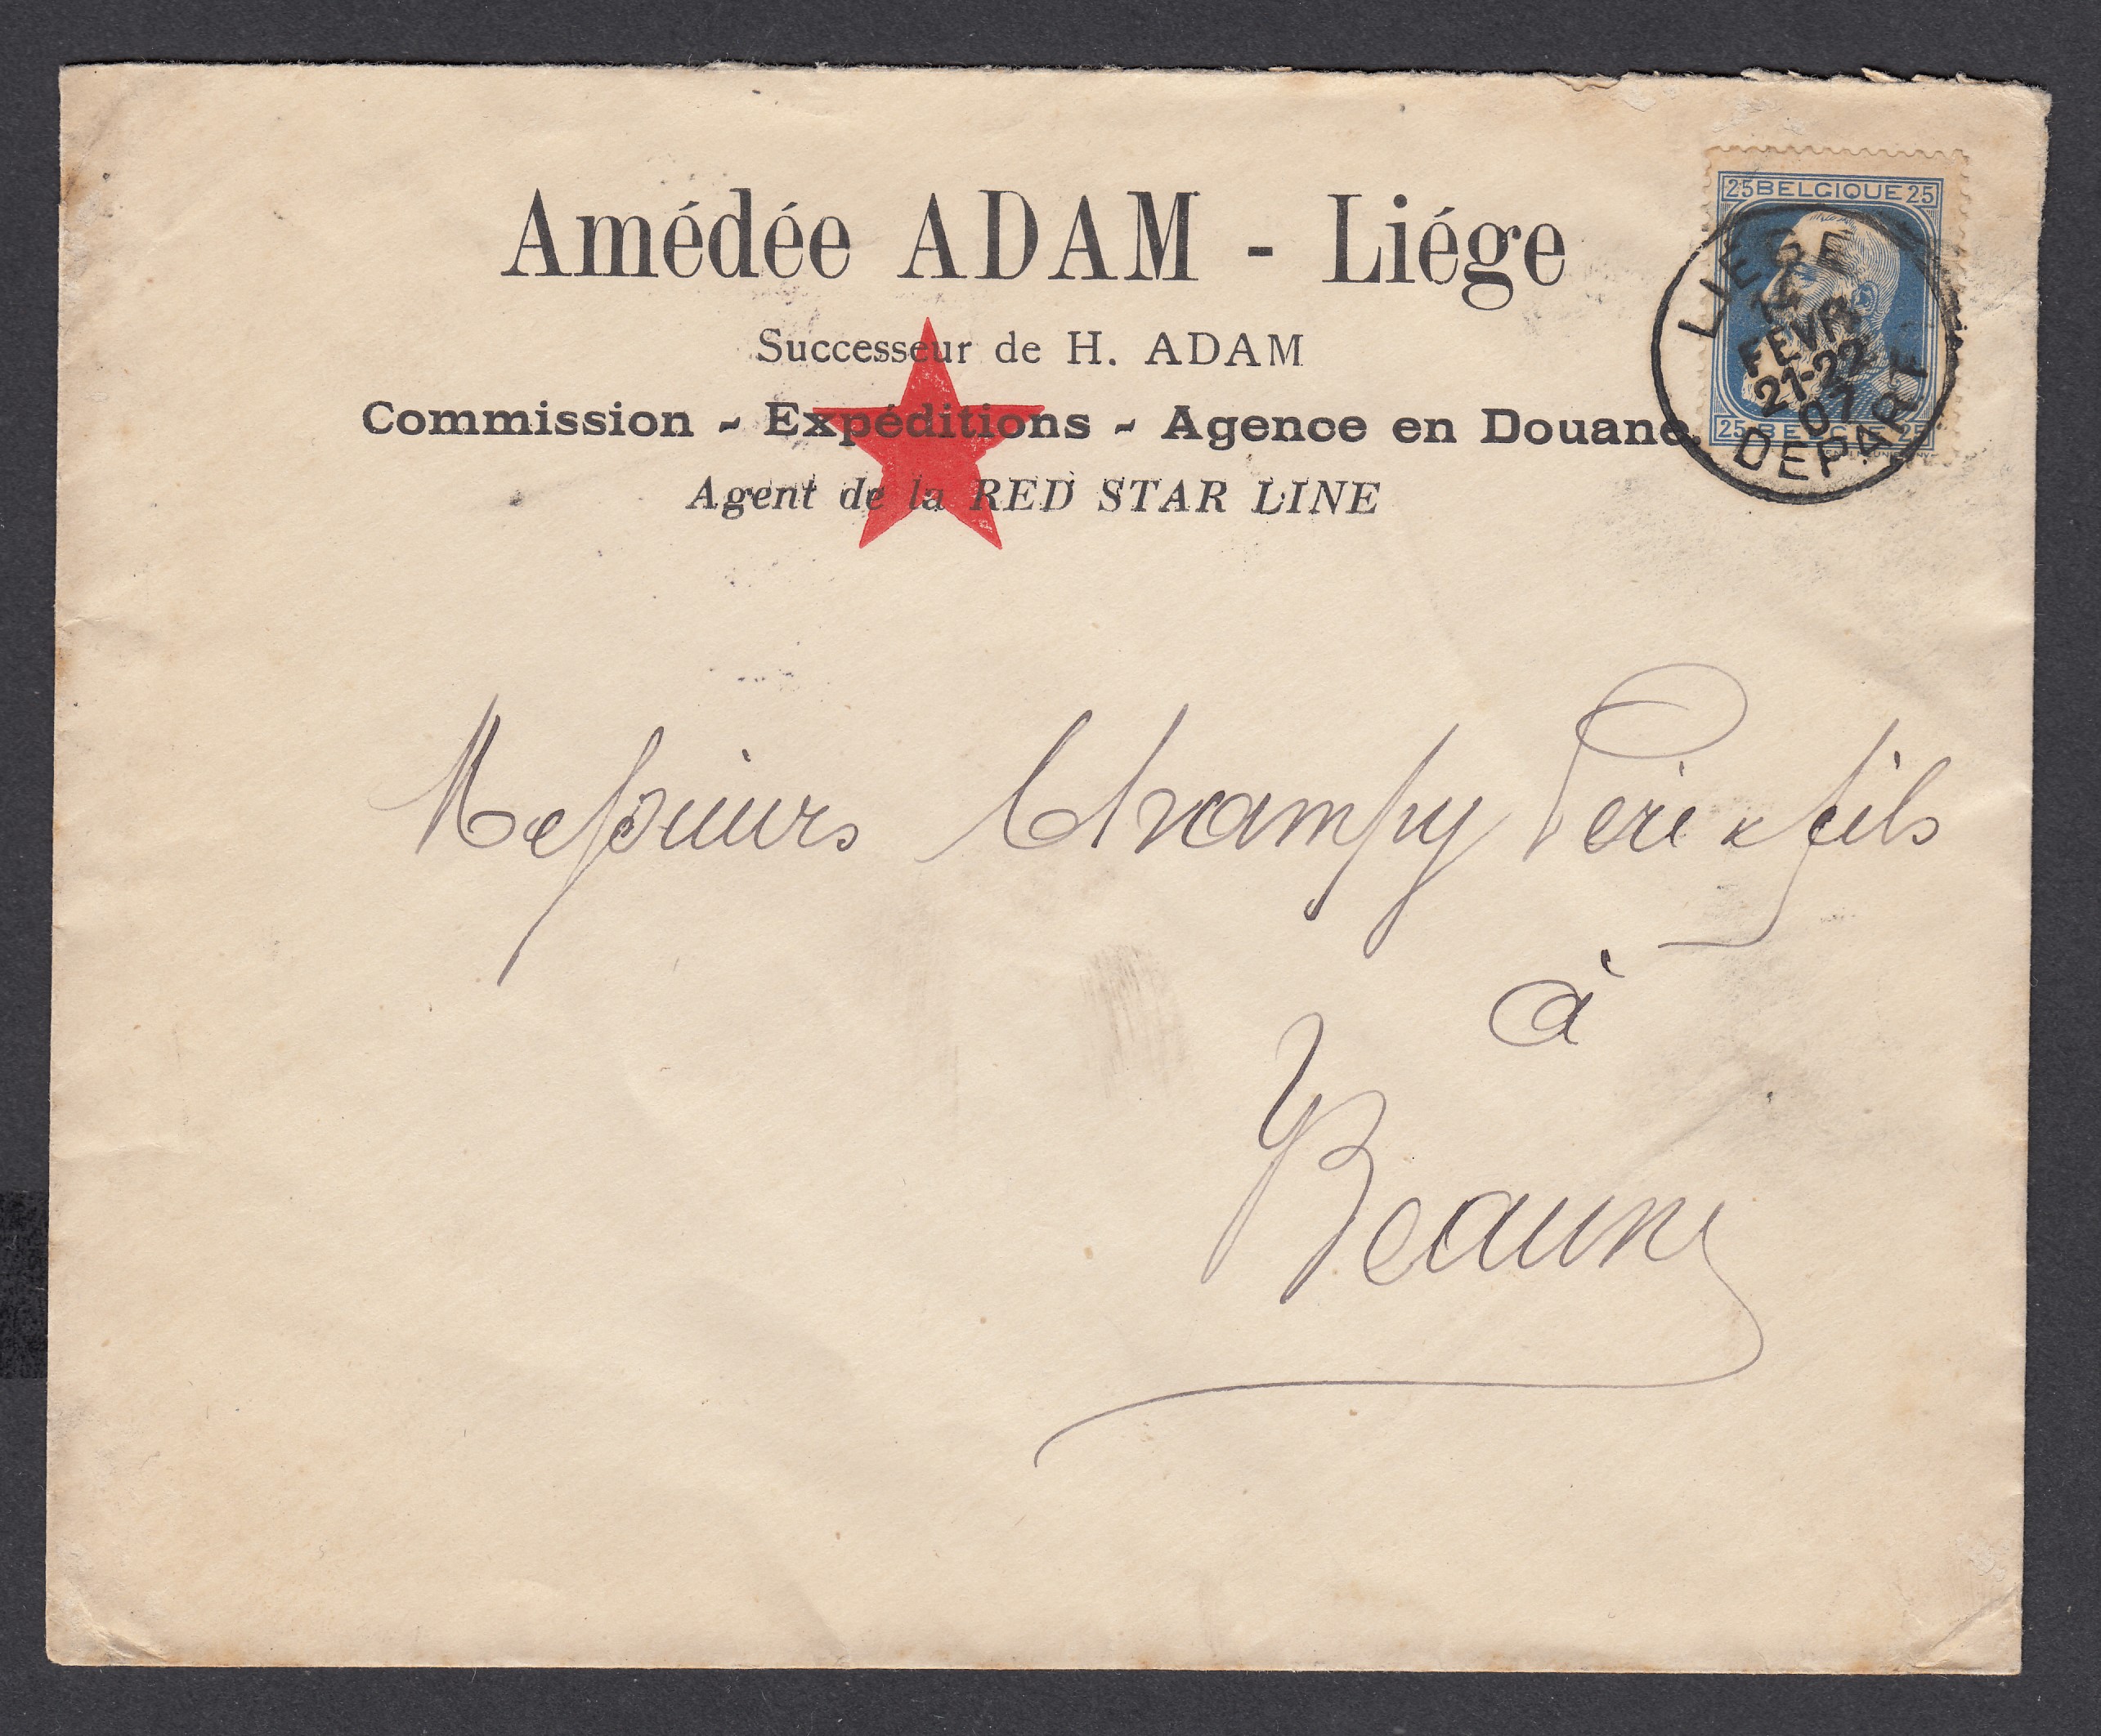 Amédée ADAM - Liége
Successeur de H. ADAM
Commission - Expéditions - Agence en Douane.
Agent de la RED STAR LINE
25 BELGIQUE 25
25 BELGIË 25
LIEGE
FEVR
21-22
07
DEPART
Messieurs Champy Père & fils
à
Beaune